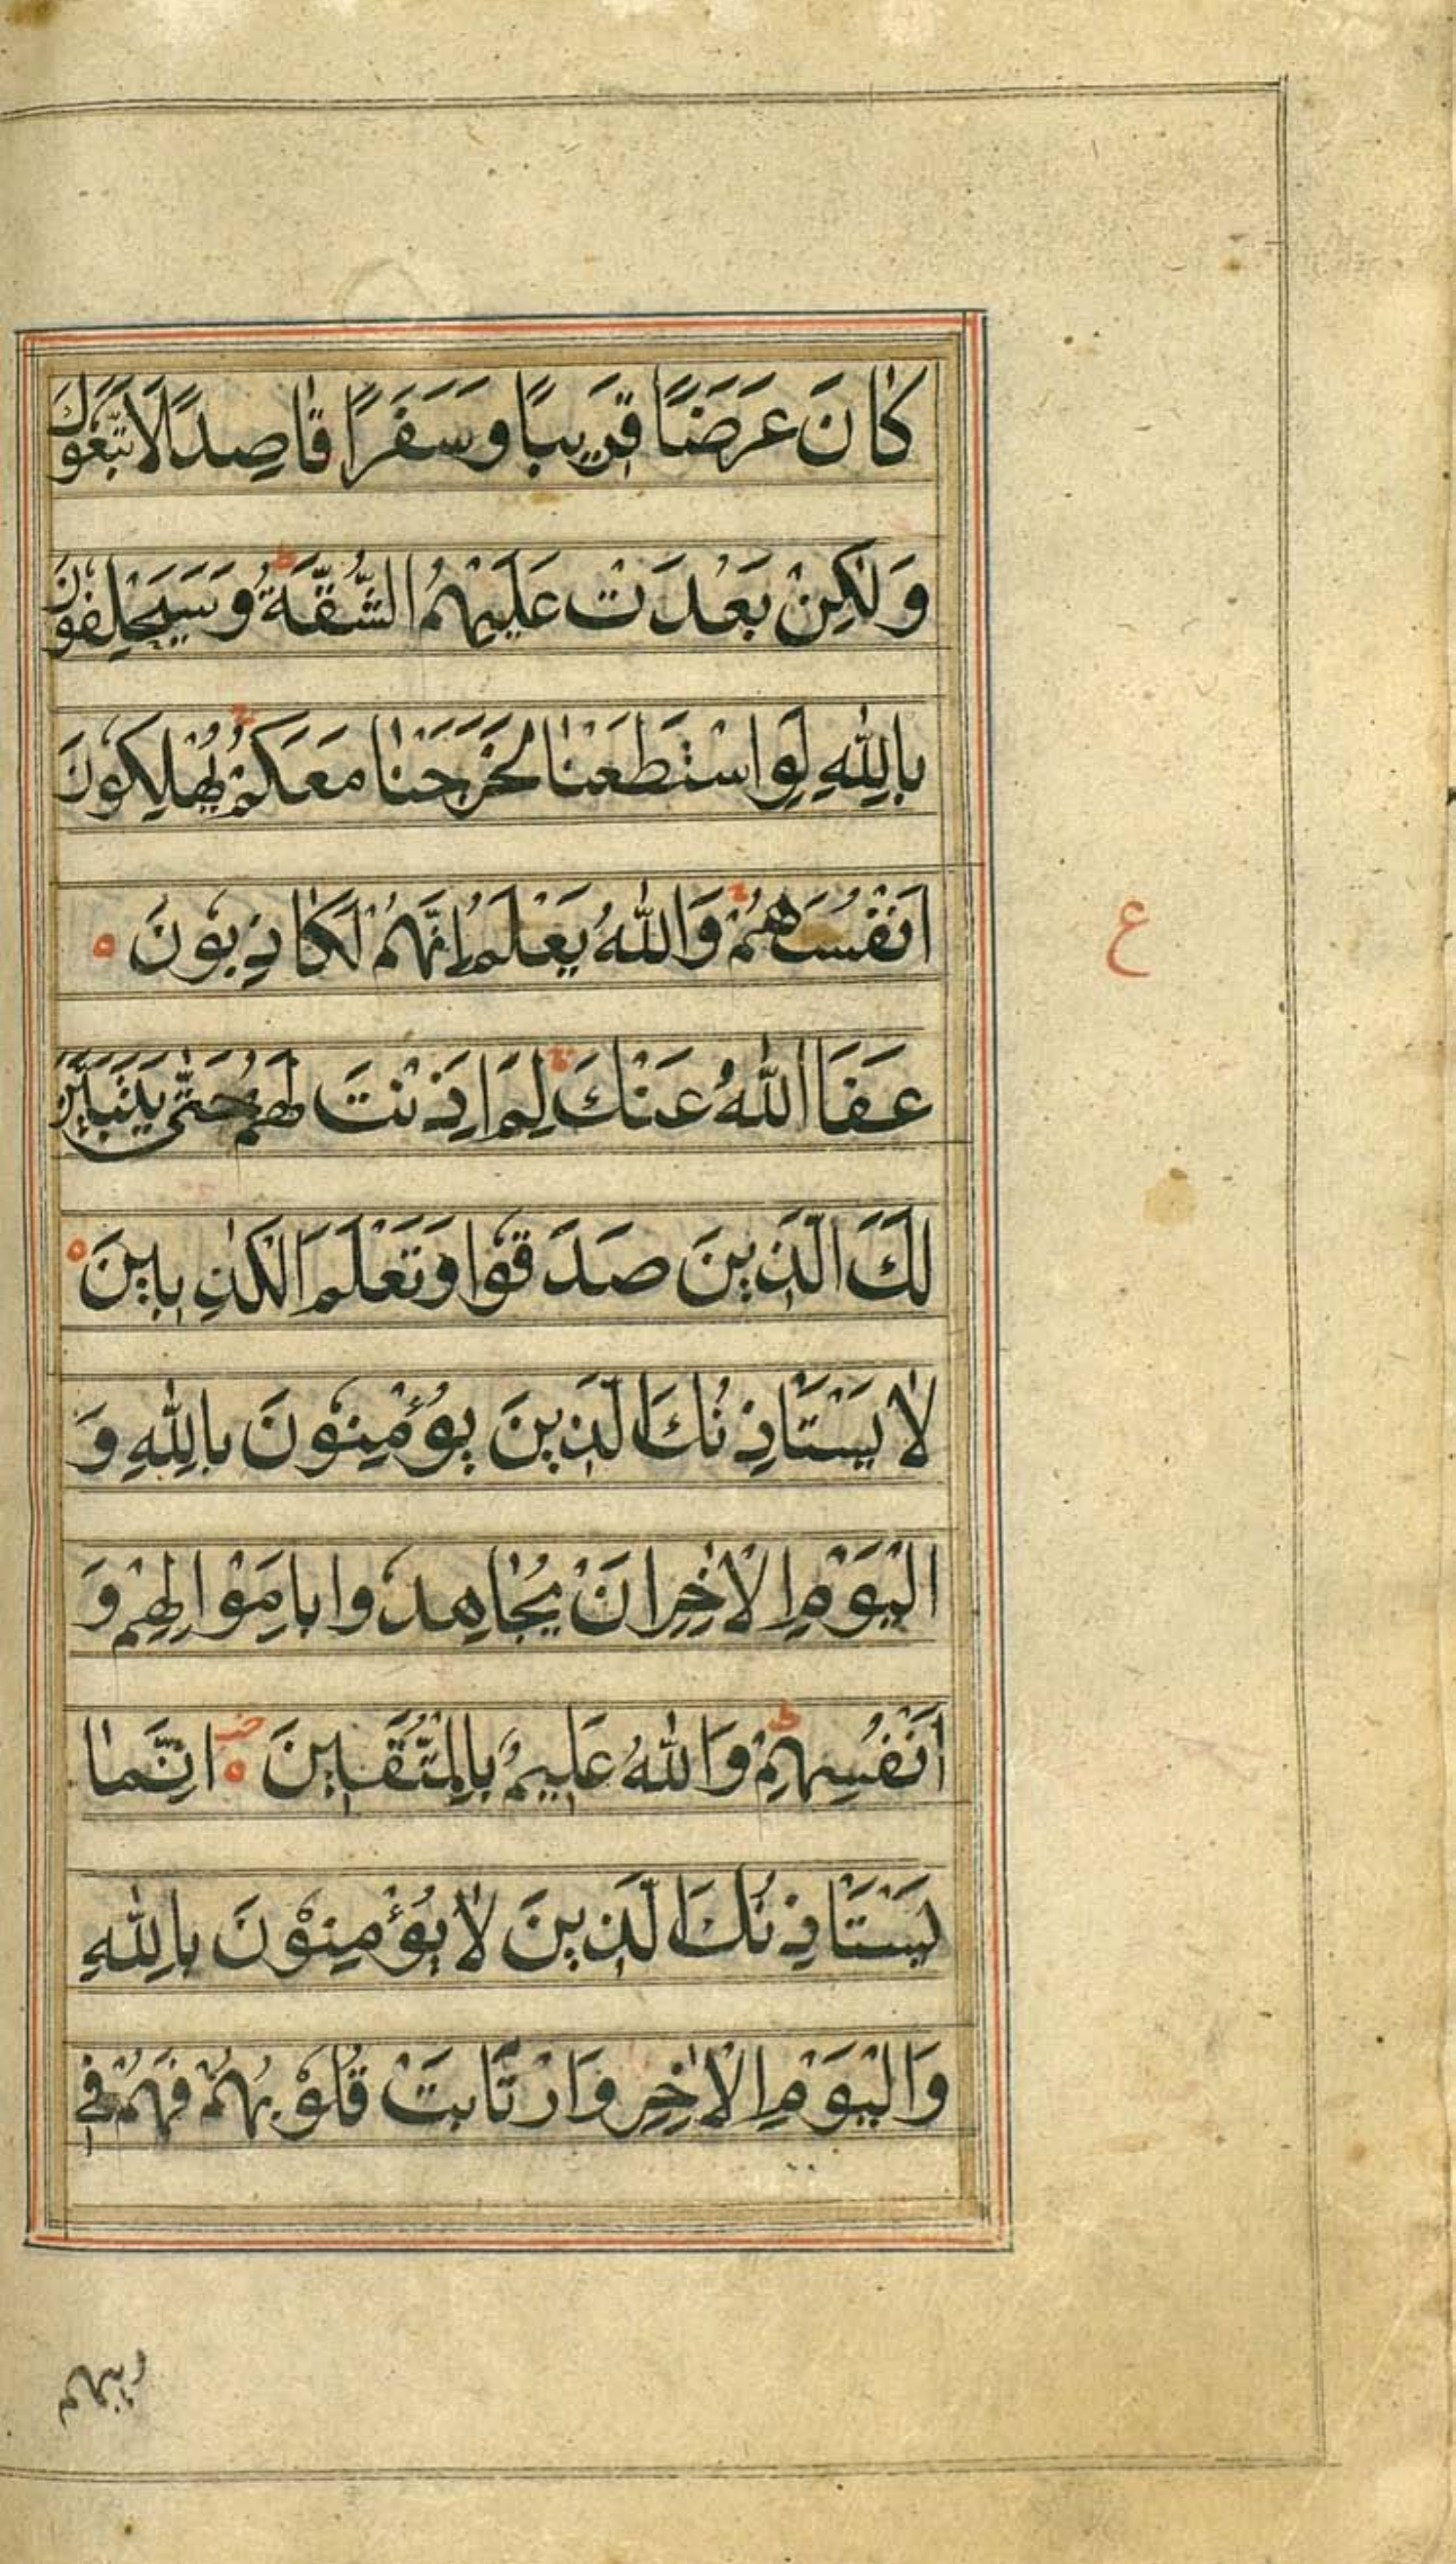 كَانَ عَرَضًا قَرِيبًا وَسَفَرًا قَاصِدًا لَاتَّبَعُوكَ
وَلٰكِنْ بَعُدَتْ عَلَيْهِمُ الشُّقَّةُ ط وَسَيَحْلِفُونَ
بِاللّٰهِ لَوِ اسْتَطَعْنَا لَخَرَجْنَا مَعَكُمْ ج يُهْلِكُونَ
اَنْفُسَهُمْ ج وَاللّٰهُ يَعْلَمُ اِنَّهُمْ لَكَاذِبُونَ ه
ع
عَفَا اللّٰهُ عَنْكَ ج لِمَ اَذِنْتَ لَهُمْ حَتّٰى يَتَبَيَّنَ
لَكَ الَّذِينَ صَدَقُوا وَتَعْلَمَ الْكٰذِبِينَ ه
لَا يَسْتَاْذِنُكَ الَّذِينَ يُؤْمِنُونَ بِاللّٰهِ وَ
الْيَوْمِ الْاٰخِرِ اَنْ يُجَاهِدُوا بِاَمْوَالِهِمْ وَ
اَنْفُسِهِمْ ط وَاللّٰهُ عَلِيمٌ بِالْمُتَّقِينَ ه اِنَّمَا
يَسْتَاْذِنُكَ الَّذِينَ لَا يُؤْمِنُونَ بِاللّٰهِ
وَالْيَوْمِ الْاٰخِرِ وَارْتَابَتْ قُلُوبُهُمْ فَهُمْ فِي
ريبهم